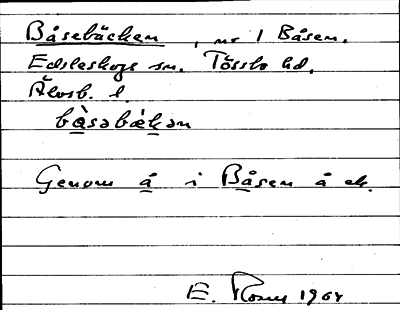 Båsebäcken, nr 1 Båsen.
Edsleskogs sn. Tössbo hd.
Älvsb. l.
bàsəbækən
Genom å i Båsen å ek.
E. 1964